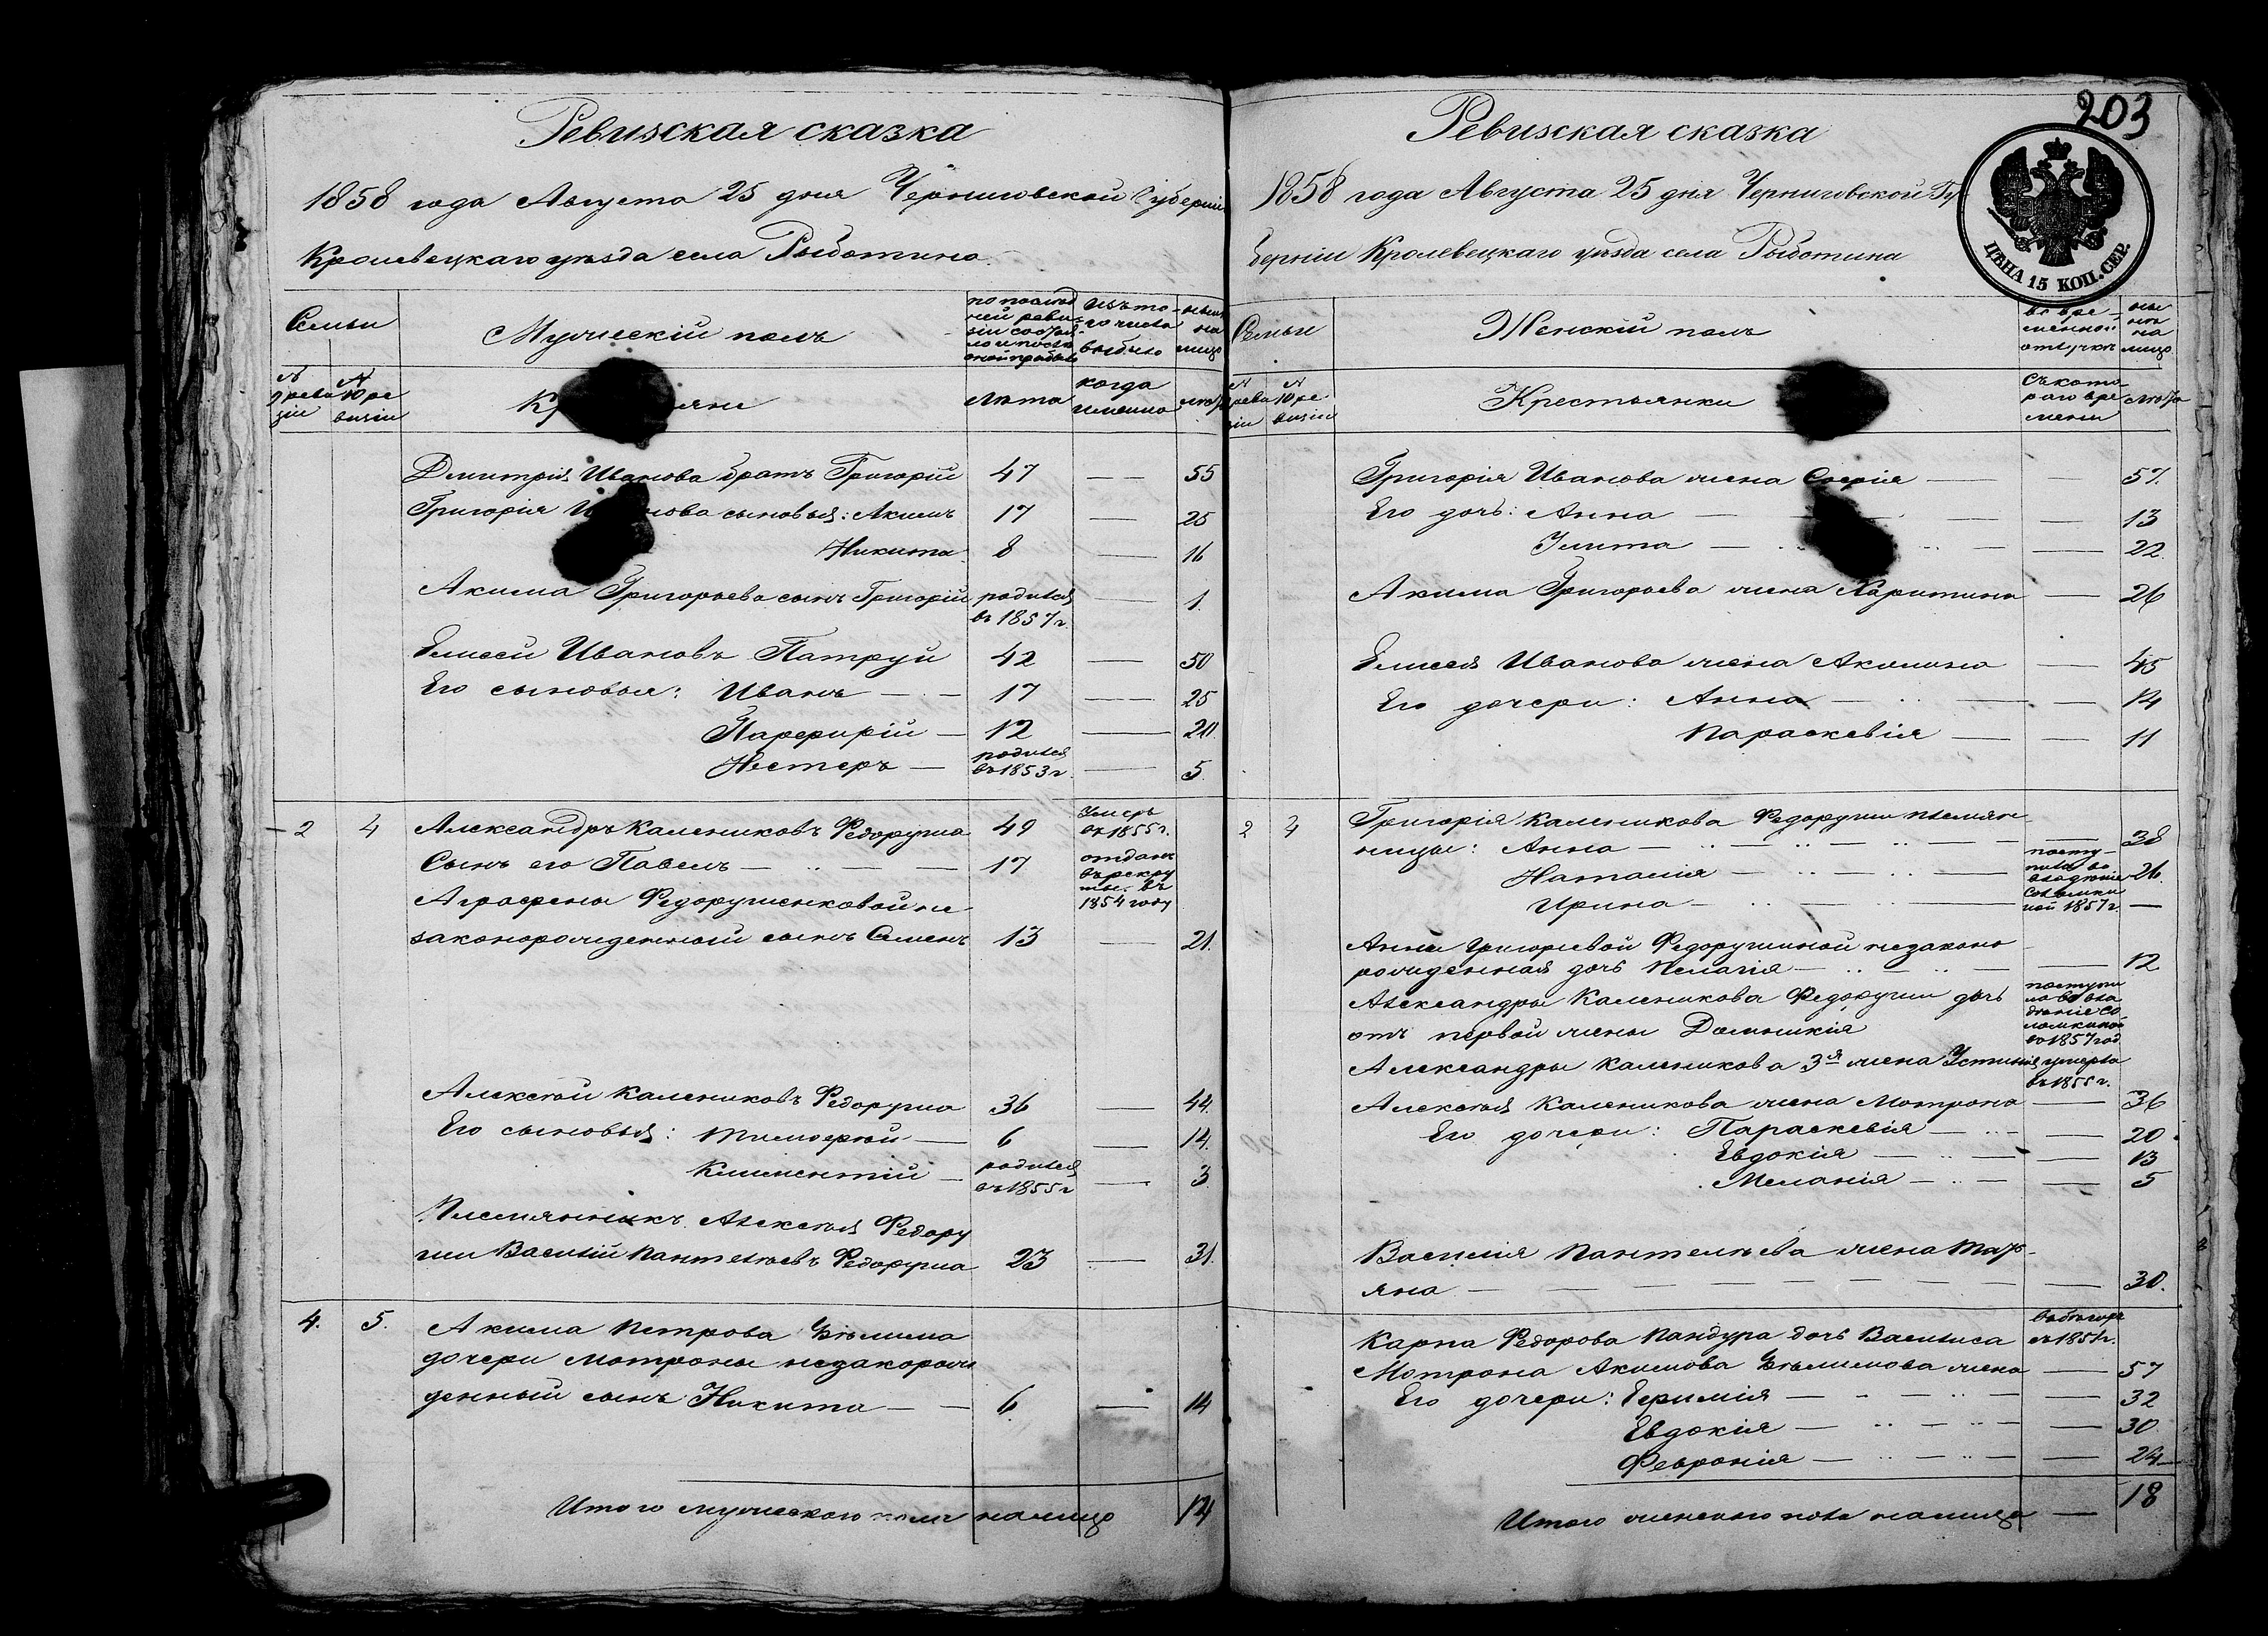 Ревизская сказка
1858 года Августа 25 дня Черниговской Губерніи
Кролевецкаго уѣзда села Рыботина
Семьи
Мужескій полъ
по послѣд
ней реви
зіи состоя
ло и послѣ
оной прибыло
Изъ то
го числа
выбыло
нынѣ
на
лицо
№
9 реви
зіи
№
10 ре
визіи
Лѣта
когда
именно
лѣта
Дмитрія Иванова братъ Григорій 47 — — 55
Григорія сыновья: Акимъ 17 — 25
Никита 8 — 16
Акима Григорьева сынъ Григорій родился въ 1857 г. — 1.
Елисей Ивановъ Патруй 42 — 50
Его сыновья: Иванъ — — 17 — 25
Парфирій — 12 — 20.
Нестеръ — родился въ 1853 г. — 5.
2 4 Александръ Калениковъ Федоруша 49 Умеръ въ 1855 г.
Сынъ его Павелъ — — — 17 отданъ въ рекруты въ 1854 году
Аграфены Федорушенковой не
законорожденный сынъ Семенъ 13 — 21.
Алексѣй Калениковъ Федоруша 36 — 44.
Его сыновья: Тимофей — 6 — 14.
Климентій — родился въ 1855 г — 3
Племянникъ Алексѣя Федору
ши Василій Пантелѣевъ Федоруша 23 — 31.
4. 5. Акима Петрова
дочери Мотроны незакорож
денный сынъ Никита — — 6 — 14
Итого мужескаго пола налицо 14
203
Ревизская сказка
1858 года Августа 25 дня Черниговской Гу
берніи Кролевецкаго уѣзда села Рыботина
ЦѢНА 15 КОП. СЕР.
Семьи
Женскій полъ
во вре
менной
отлучкѣ
ны
нѣ
на
лицо
№
9 реви
зіи
№
10 ре
визіи
Крестьянки
съ кото
раго вре
мени
лѣта
Григорія Иванова жена Софія — — 57.
Его дочь: Анна — — — 13
Улита — — — 22.
Акима Григорьева жена Харитина — 26
Елисея Иванова жена Акилина — 45
Его дочери: Анна — — — 14
Параскевія — — 11
2 4 Григорія Каленикова Федоруши племян
ницы: Анна — — — — — 38
Наталія — — — 26.
Ирина — — — —
поступила во владѣніе 1857 г.
Анны Григорьевой Федорушиной незаконо
рожденная дочь Пелагія — — — 12
Александры Каленикова Федоруши дочь
отъ первой жены Домникія
поступила во владѣніе въ 1857 год
Александры Каленикова 3я жена Устинія умерла въ 1855 г.
Алексѣя Каленикова жена Мотрона — 36
Его дочери: Параскевія — — — 20
Евдокія — — — 13
Меланія — — — 5
Василія Пантелѣева жена Мар-
яна — — — — — — 30.
Карпа Федорова Пандура дочь Василиса
Мотрона Акимова жена — 57
Его дочери: Ефимія — — — 32
Евдокія — — — 30.
Февронія — — — 24
Итого женскаго пола налицо — 18